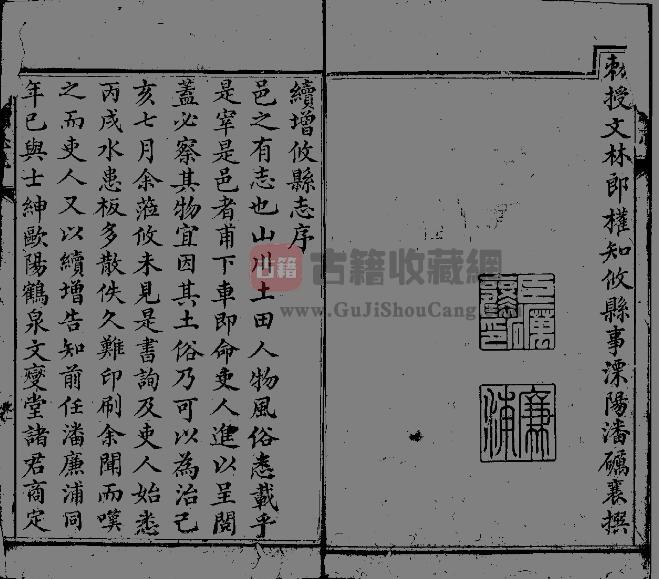 勅授文林郎權知攸縣事溧陽潘礪襄撰
廉浦
續增攸縣志序
邑之有志也山川土田人物風俗悉載乎
是宰是邑者甫下車即命吏人進以呈閱
蓋必察其物宜因其土俗乃可以為治己
亥七月余蒞攸未見是書詢及吏人始悉
丙戌水患板多散佚久難印刷余聞而嘆
之而吏人又以續增告知前任潘廉浦同
年已與士紳歐陽鶴泉文燮堂諸君商定
古籍
古籍收藏網
www.GuJiShouCang